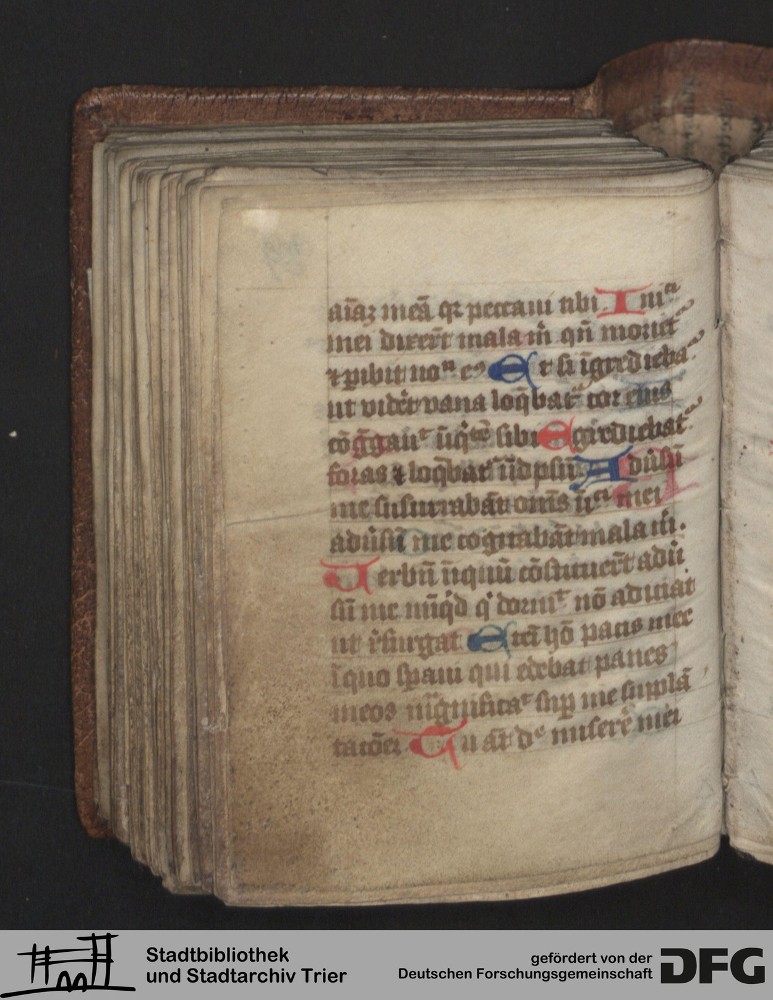 aīaz meā qr peccaui tibi. Inīᶜⁱ
mei dixert mala m̄ qn̄ moriet᷑
⁊ pibit noⁿ eꝰ Et si īgrediebat᷑
ut vidēt vana loq̄bat᷑ cor eius
cōg̃gauᵗ īiq̄tē sibi Egrediebat᷑
foras ⁊ loq̄bat᷑ īidpsū Adūsū
me susurrabāt om̄s īīᶜⁱ mei
adūsū me cogitabāt mala m̄.
Uerbū iniquū cōstituerūt adū
sū me nūq̄d q̇ dormᵗ nō adiciat
ut r̄surgat Etei̅ hō pacis mee
ī quo spaui qui edebat panes
meos māgnificaᵗ sup me supplā
tacōēz Tu āt dᵉ miserē mei
Stadtbibliothek
und Stadtarchiv Trier
gefördert von der
Deutschen Forschungsgemeinschaft
DFG